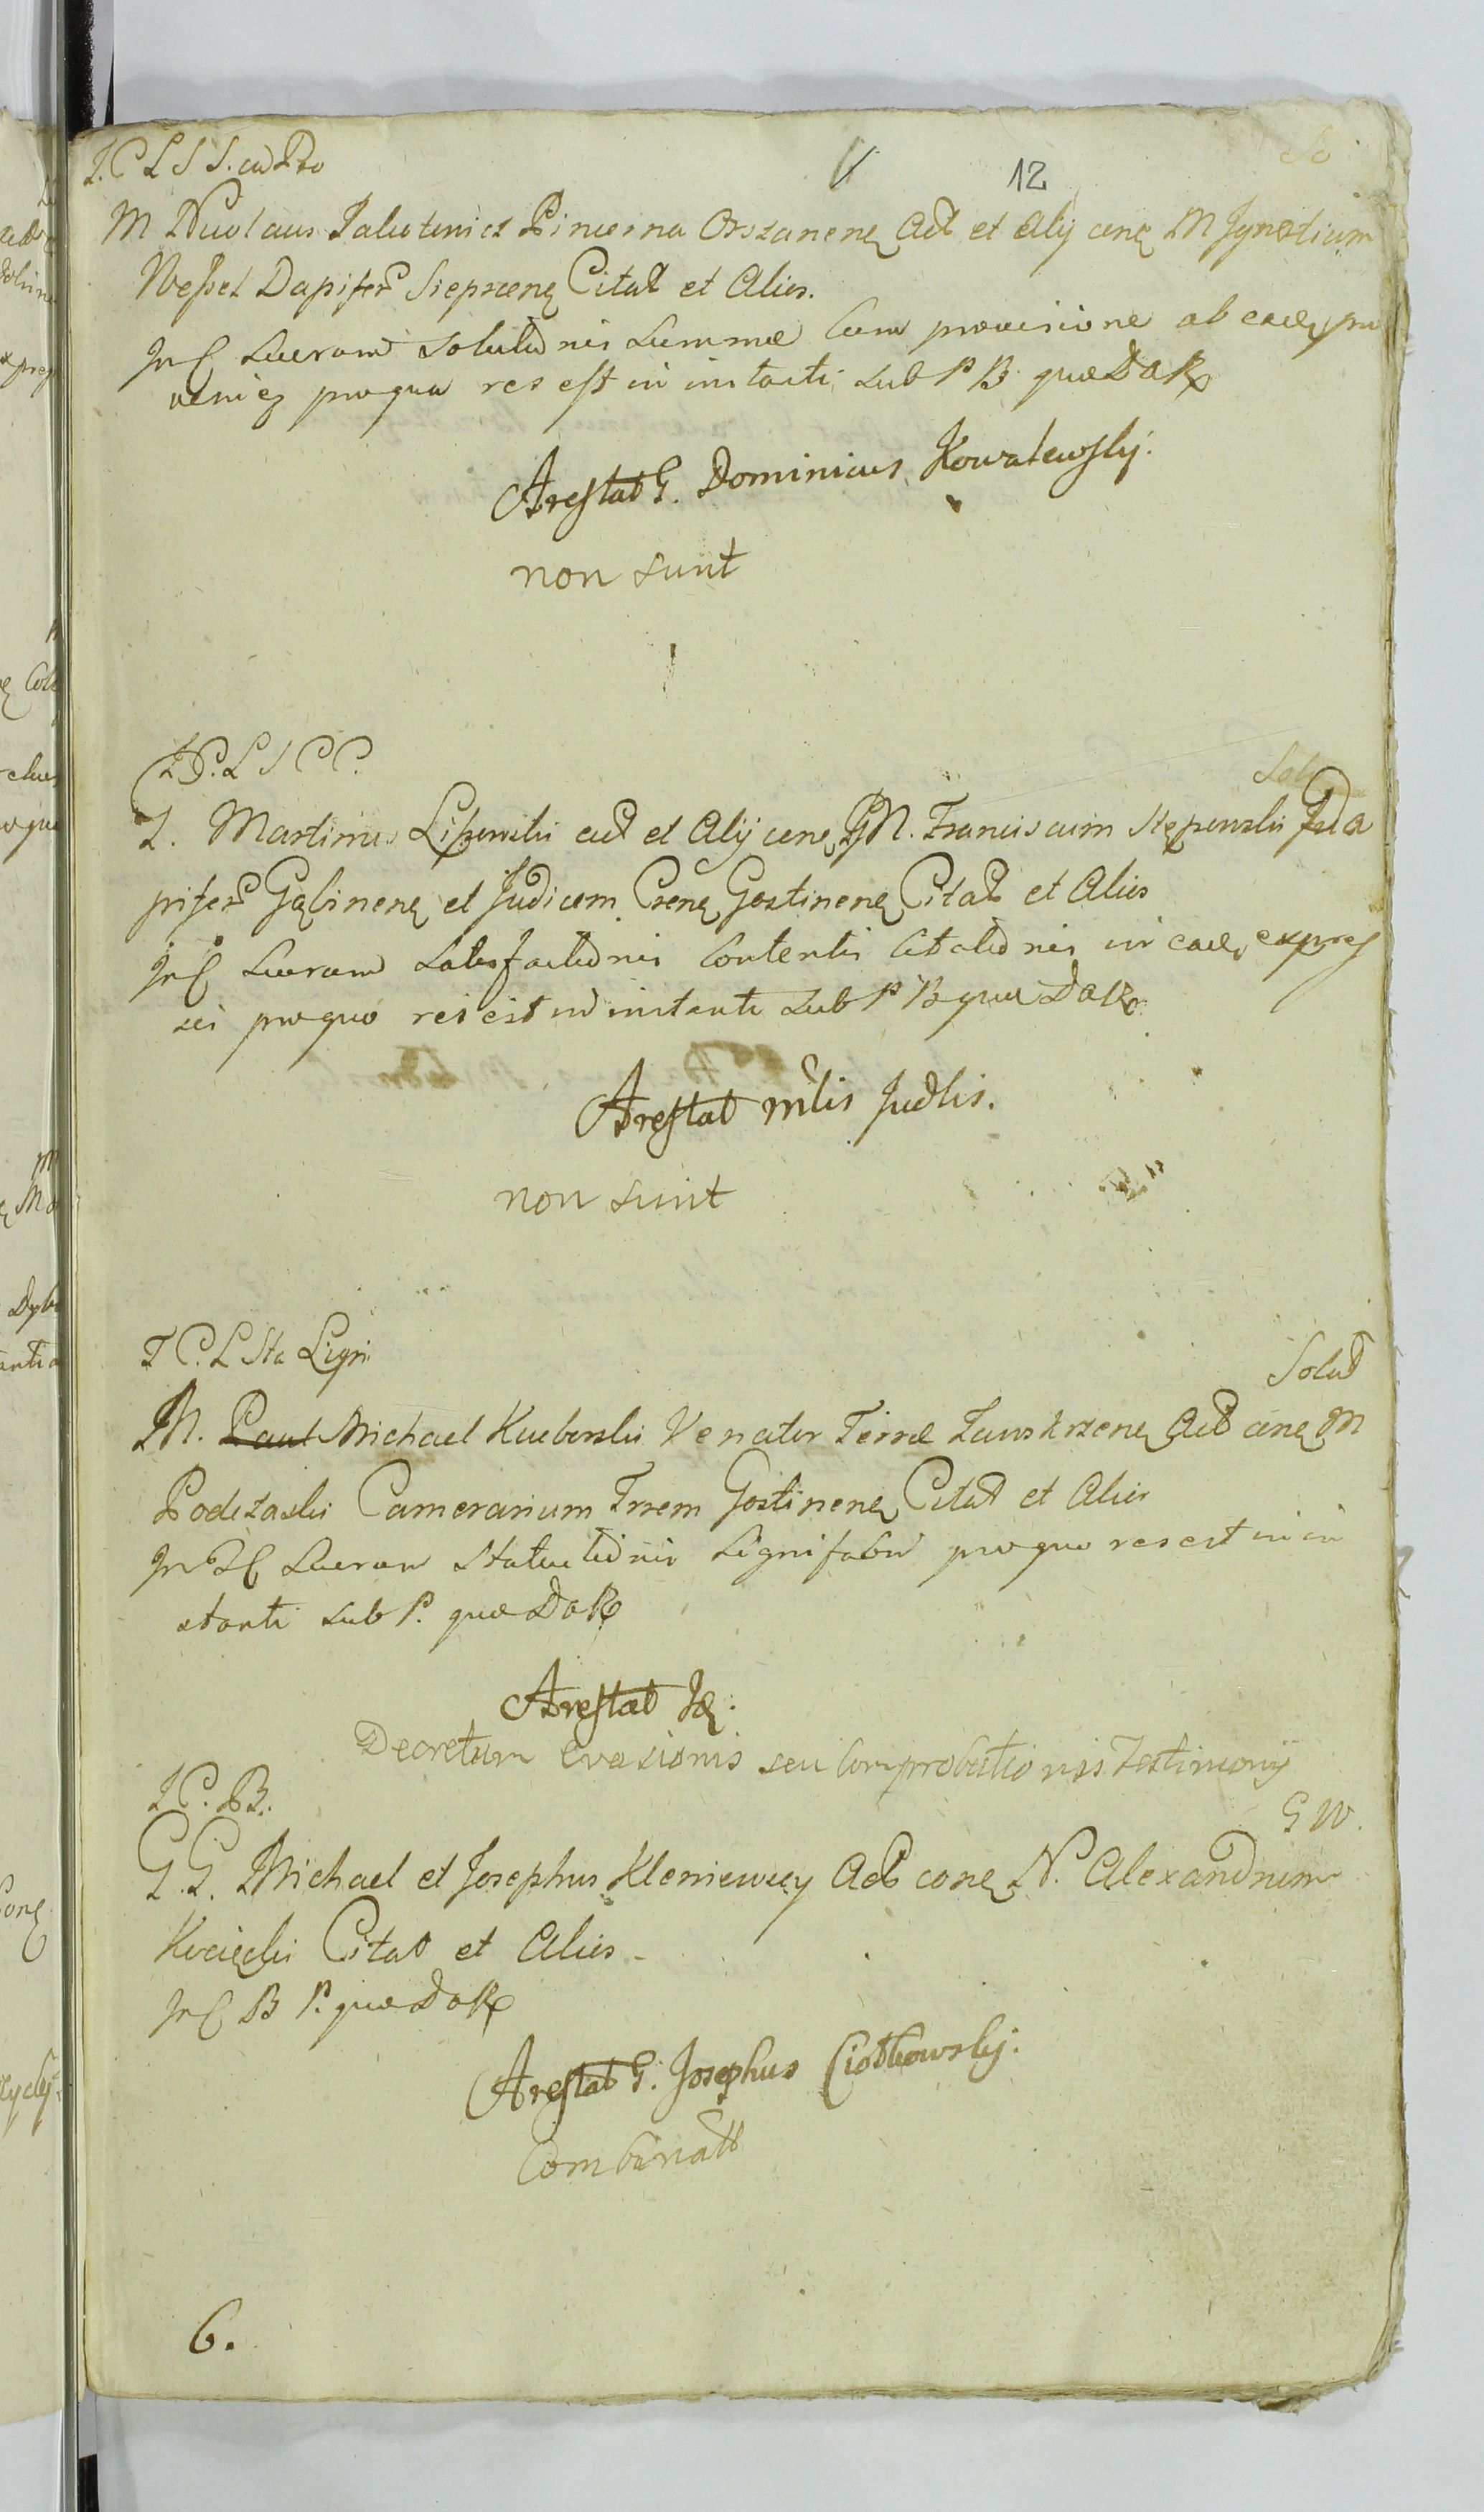 12
I.C L S S. cu Pro
M Nicolaus Jalutowicz Pincerna Orszanenę Act et Alij cenę M Jgnatium
Weſſel Dapifer Sieprcenę Citat et Alios.
Jn C Luerum solutionis summæ Cum provisione ab eadę pro
venieꝫ pro qua res eſt in instanti sub P B quæ DaR
Areſtat G. Dominicus Kowalewſkj.
non sunt
I C. L S C C.
Solut
I. Martinus Lipowski act et Alij cenę M. Franciscum Stępowski Da
pifer Gąbinenę et Judicem Crenę Gostinenę Citat et Alios
Jn C Luerum satisfactionis Contentis Citationis in eadę expreſ
sis pro quo res est in instanti sub P B quæ DaR
Areſtat Mlis Judlis.
non sunt
I C. L Sta Ligni
Solut
M. Paul Michael Kueborski Venator Terræ Zawskrzenę Act cenę M
Podczaski Camerarium Trrem Gostinenę Citat et Alios
Jn C Luerum statuitionis Lignifabu pro quo res est in in
stanti sub P. quæ DaR
Areſtat Jd.
Decretum evasionis seu Comprobationis Testimonij
I C. B.
G W.
G.G. Michael et Josephus Kleniewscy Act conę N. Alexandrum
Kucięcki Citat et Alios
Jn C B P. quæ DaR
Areſtat G. Josephus Ciotkowskj.
Combinatt
6.